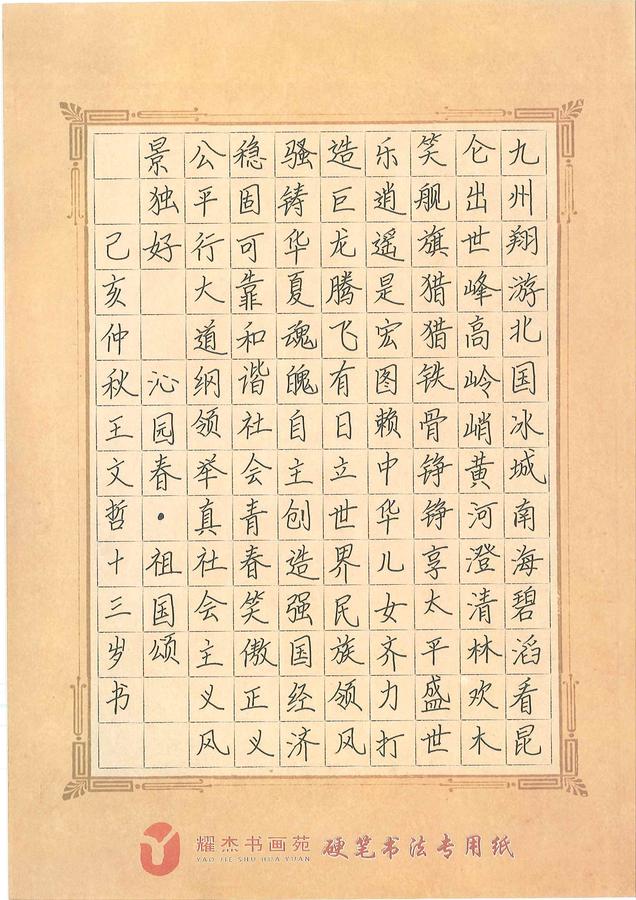 九州翔游北国冰城南海碧滔看昆
仑出世峰高岭峭黄河澄清林欢木
笑舰旗猎猎铁骨铮铮享太平盛世
乐逍遥是宏图赖中华儿女齐力打
造巨龙腾飞有日立世界民族领风
骚铸华夏魂魄自主创造强国经济
稳固可靠和谐社会青春笑傲正义
公平行大道纲领举真社会主义风
景独好 沁园春·祖国颂
己亥仲秋王文哲十三岁书
耀杰书画苑 硬笔书法专用纸
YAO JIE SHU HUA YUAN